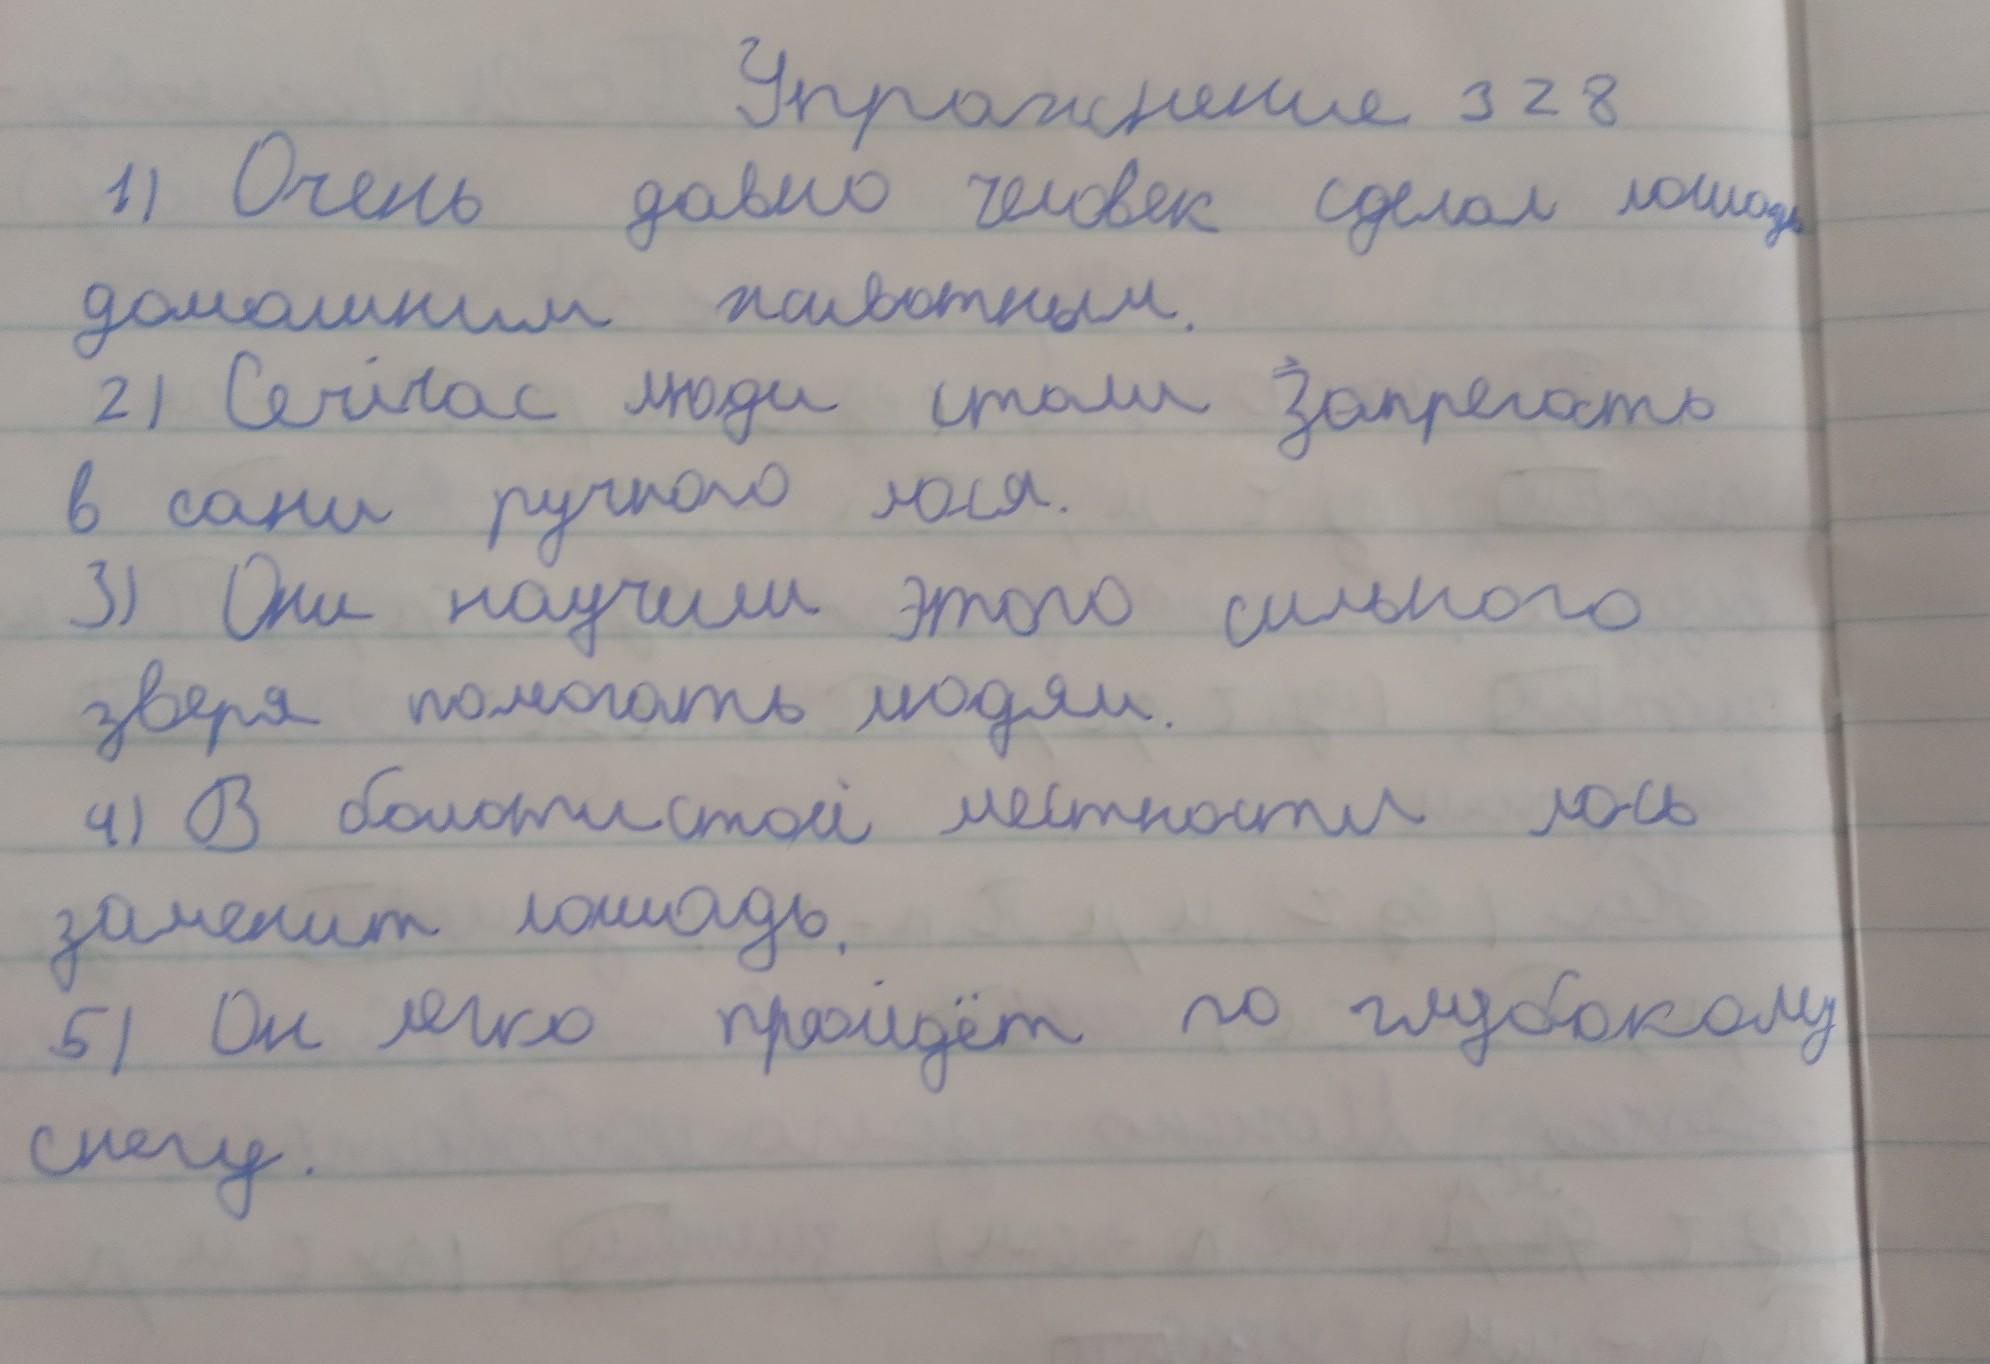 Упражнение 328
1) Очень давно человек сделал лошадь
домашним животным.
2) Сейчас люди стали запрегать
в сани ручного лося.
3) Они научили этого сильного
зверя помогать людям.
4) В болотистой местности лось
заменит лошадь.
5) Он легко пройдёт по глубокому
снегу.